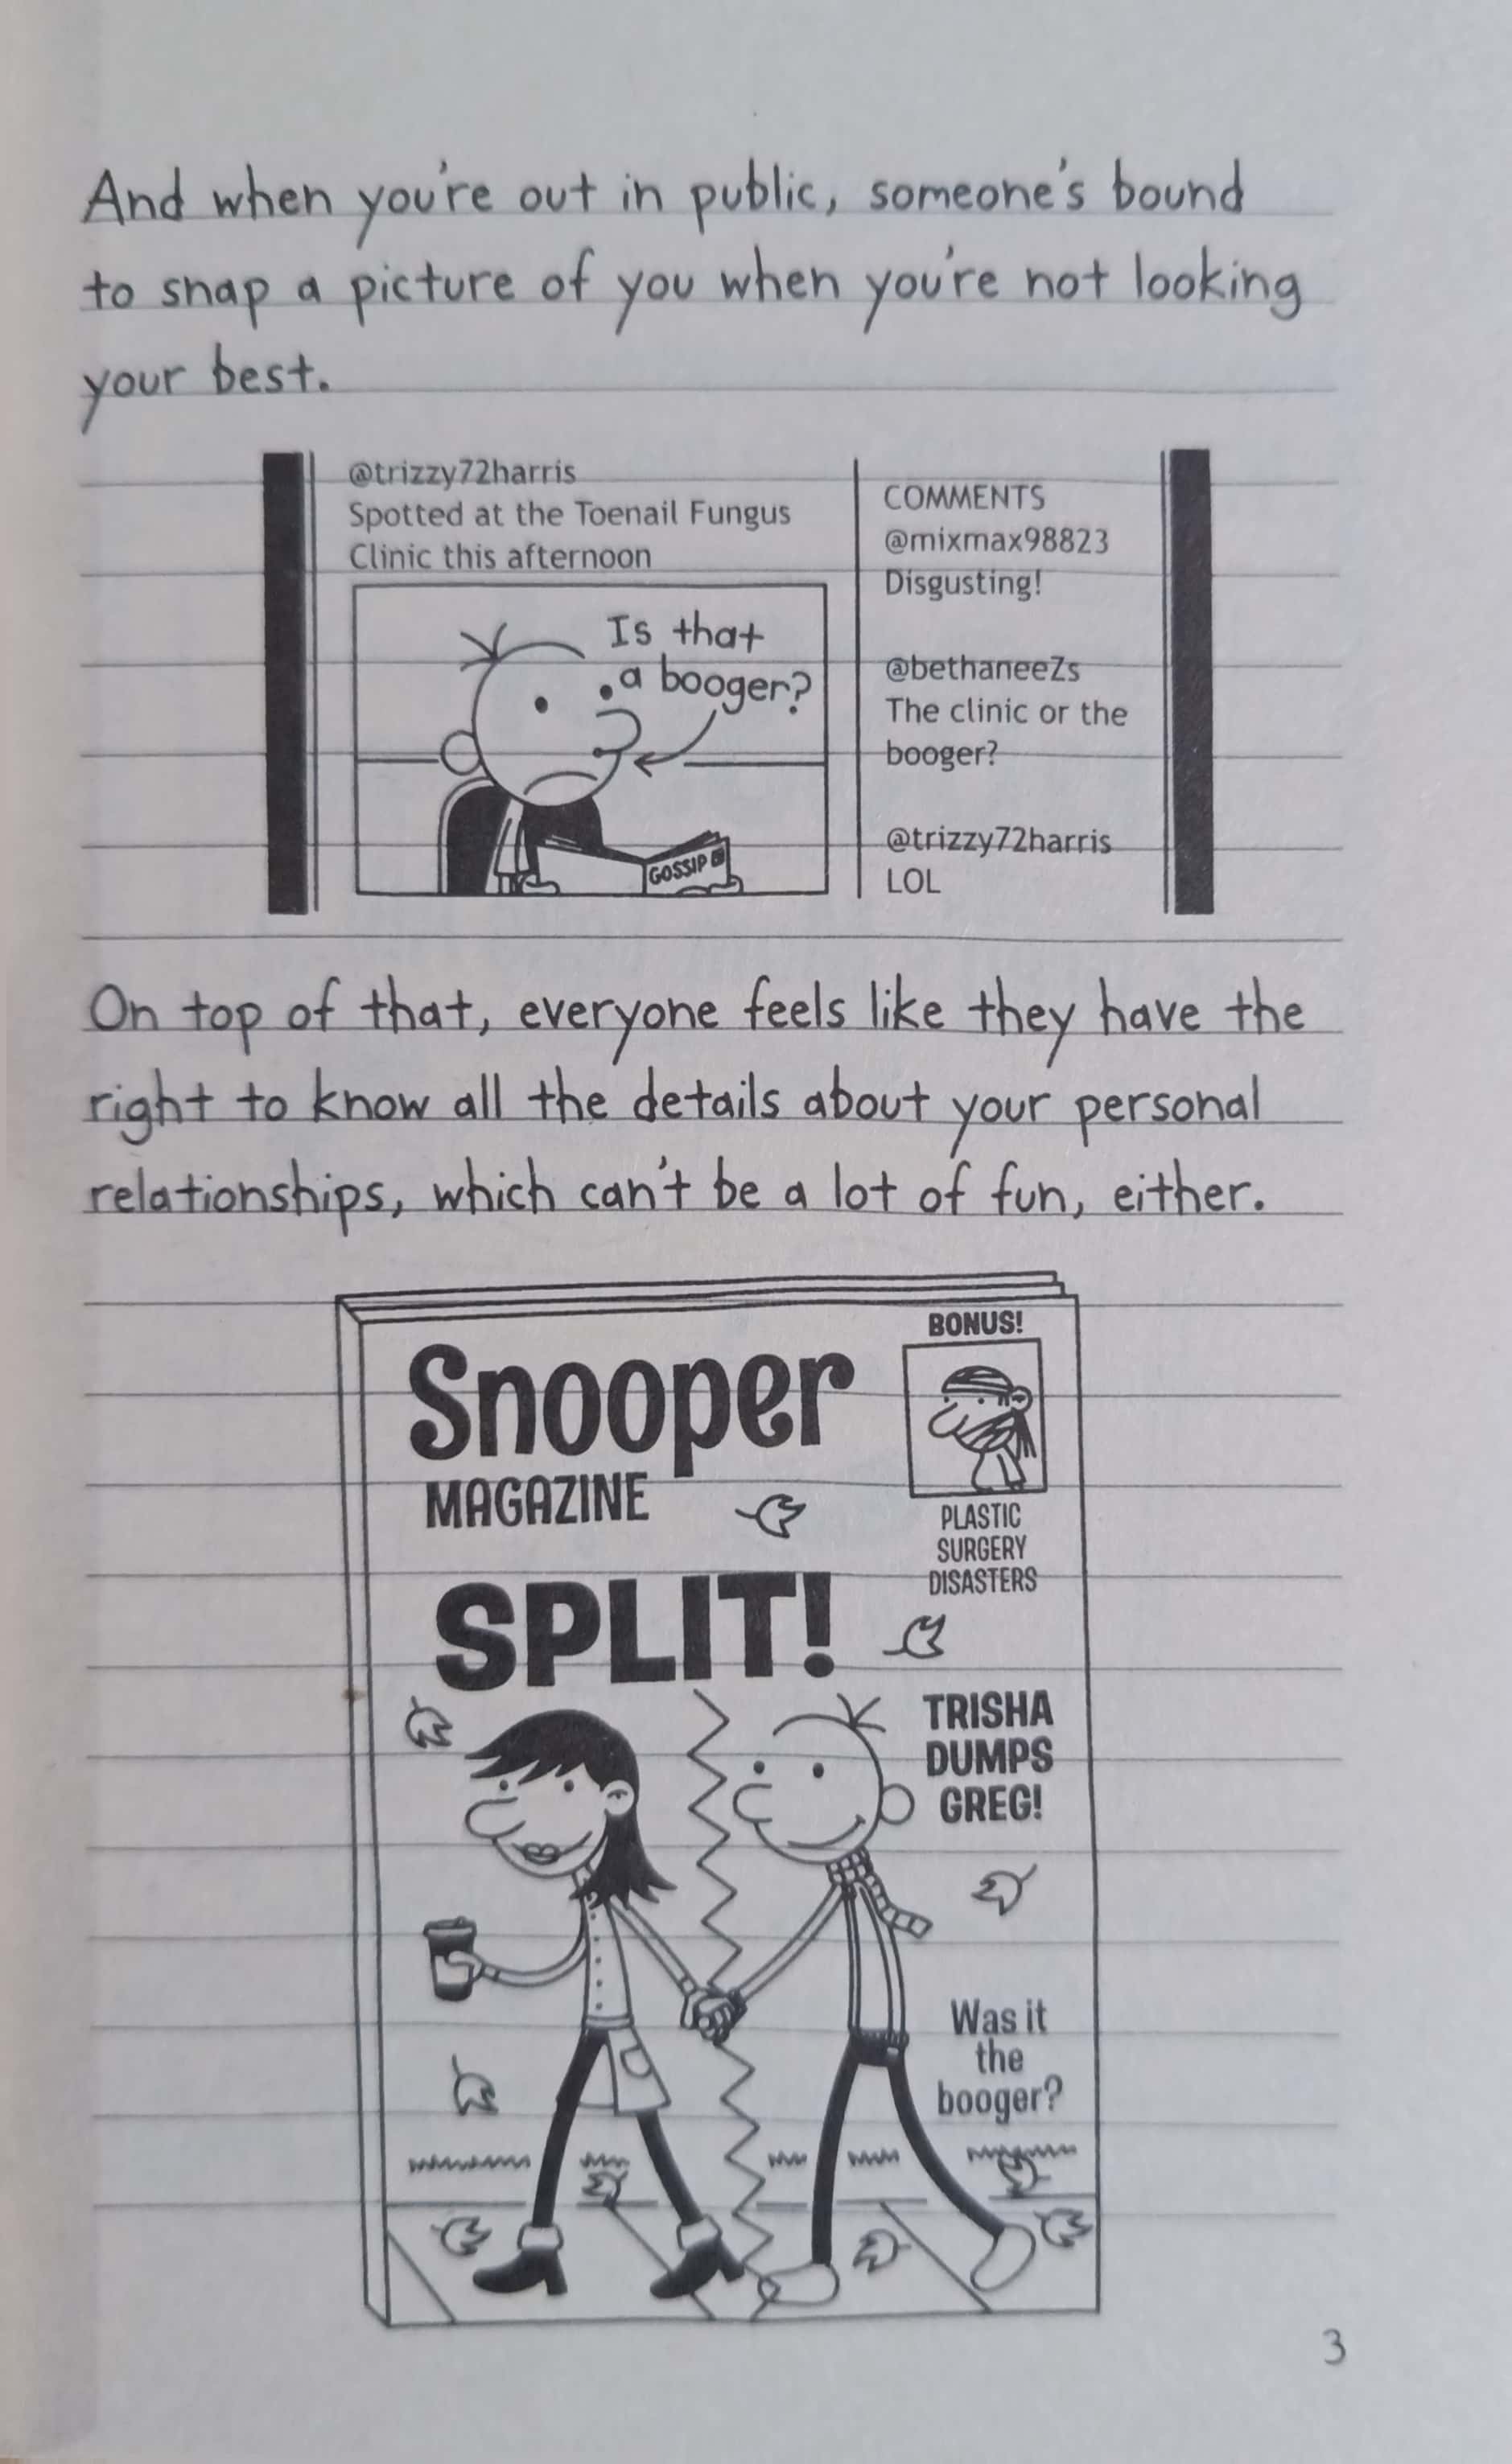 And when you're out in public, someone's bound
to snap a picture of you when you're not looking
your best.
@trizzy72harris
Spotted at the Toenail Fungus
Clinic this afternoon
Is that
a booger?
GOSSIP
COMMENTS
@mixmax98823
Disgusting!
@bethaneeZs
The clinic or the
booger?
@trizzy72harris
LOL
On top of that, everyone feels like they have the
right to know all the details about your personal
relationships, which can't be a lot of fun, either.
Snooper
MAGAZINE
BONUS!
PLASTIC
SURGERY
DISASTERS
SPLIT!
TRISHA
DUMPS
GREG!
Was it
the
booger?
3